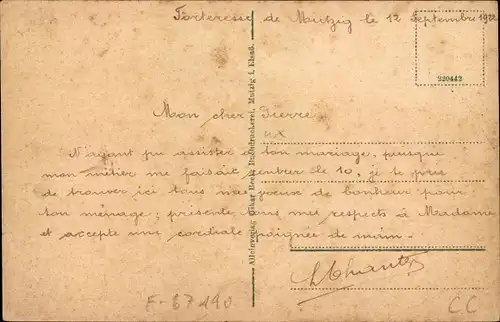 Forteresse de Mutzig le 12 Septembre 1922
220442
Mon cher Pierre
N'ayant pu assister à ton mariage, puisque
mon métier me faisait entrer le 10, je te prie
de trouver ici tous mes vœux de bonheur pour
ton ménage; présente tous mes respects à Madame
et accepte une cordiale poignée de main.
Alleinverlag: Oskar Beck, Buchdruckerei, Mutzig i. Elsaß.
F-67190
CC